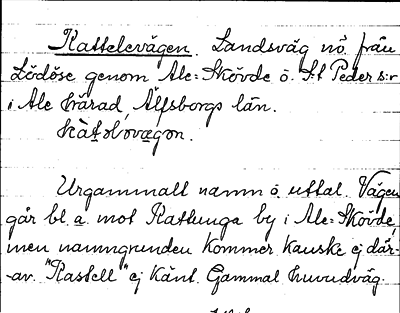 Rattelevägen. Landsväg nö. från
Lödöse genom Ale-Skövde o. S:t Peder s:r
i Ale härad, Älfsborgs län.
Urgammalt namn o. uttal. Vägen
går bl. a mot Rattunga by i Ale-Skövde,
men namngrunden kommer kanske ej där-
-av. "Rastell" ej känt. Gammal huvudväg.